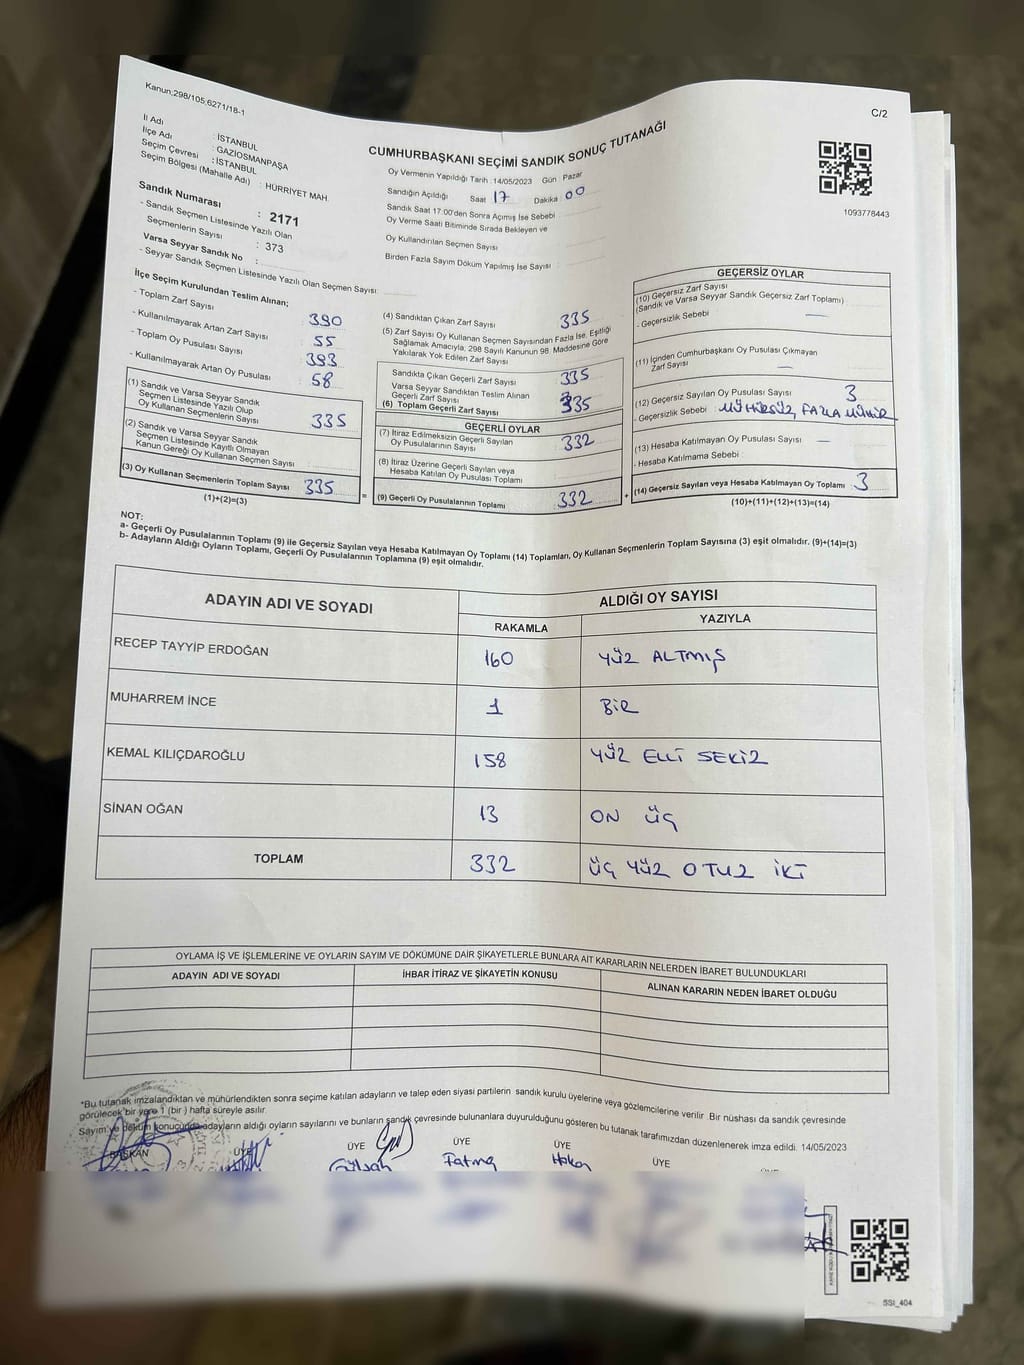 Kanun:298/105,6271/18-1
C/2
İl Adı : İSTANBUL
İlçe Adı : GAZİOSMANPAŞA
Seçim Çevresi : İSTANBUL
Seçim Bölgesi (Mahalle Adı) : HÜRRİYET MAH.
CUMHURBAŞKANI SEÇİMİ SANDIK SONUÇ TUTANAĞI
1093778443
Sandık Numarası : 2171
- Sandık Seçmen Listesinde Yazılı Olan
Seçmenlerin Sayısı : 373
Varsa Seyyar Sandık No :
- Seyyar Sandık Seçmen Listesinde Yazılı Olan Seçmen Sayısı:
Oy Vermenin Yapıldığı Tarih :14/05/2023 Gün Pazar
Sandığın Açıldığı Saat 17 Dakika 00
Sandık Saat 17:00'den Sonra Açımış İse Sebebi
Oy Verme Saati Bitiminde Sırada Bekleyen ve
Oy Kullandırılan Seçmen Sayısı
Birden Fazla Sayım Döküm Yapılmış İse Sayısı :
İlçe Seçim Kurulundan Teslim Alınan;
- Toplam Zarf Sayısı : 390
- Kullanılmayarak Artan Zarf Sayısı : 55
- Toplam Oy Pusulası Sayısı : 393
- Kullanılmayarak Artan Oy Pusulası : 58
(1) Sandık ve Varsa Seyyar Sandık
Seçmen Listesinde Yazılı Olup
Oy Kullanan Seçmenlerin Sayısı : 335
(2) Sandık ve Varsa Seyyar Sandık
Seçmen Listesinde Kayıtlı Olmayan
Kanun Gereği Oy Kullanan Seçmen Sayısı :
(3) Oy Kullanan Seçmenlerin Toplam Sayısı : 335
(1)+(2)=(3)
=
(4) Sandıktan Çıkan Zarf Sayısı : 335
(5) Zarf Sayısı Oy Kullanan Seçmen Sayısından Fazla İse, Eşitliği
Sağlamak Amacıyla, 298 Sayılı Kanunun 98. Maddesine Göre
Yakılarak Yok Edilen Zarf Sayısı :
Sandıkta Çıkan Geçerli Zarf Sayısı : 335
Varsa Seyyar Sandıktan Teslim Alınan
Geçerli Zarf Sayısı :
(6) Toplam Geçerli Zarf Sayısı : 335
GEÇERLİ OYLAR
(7) İtiraz Edilmeksizin Geçerli Sayılan
Oy Pusulalarının Sayısı : 332
(8) İtiraz Üzerine Geçerli Sayılan veya
Hesaba Katılan Oy Pusulası Toplamı :
(9) Geçerli Oy Pusulalarının Toplamı : 332
+
GEÇERSİZ OYLAR
(10) Geçersiz Zarf Sayısı
(Sandık ve Varsa Seyyar Sandık Geçersiz Zarf Toplamı) :
- Geçersizlik Sebebi : —
(11) İçinden Cumhurbaşkanı Oy Pusulası Çıkmayan
Zarf Sayısı : —
(12) Geçersiz Sayılan Oy Pusulası Sayısı : 3
- Geçersizlik Sebebi : MÜHÜRSÜZ, FAZLA MÜHÜR
(13) Hesaba Katılmayan Oy Pusulası Sayısı : —
- Hesaba Katılmama Sebebi :
(14) Geçersiz Sayılan veya Hesaba Katılmayan Oy Toplamı : 3
(10)+(11)+(12)+(13)=(14)
NOT:
a- Geçerli Oy Pusulalarının Toplamı (9) ile Geçersiz Sayılan veya Hesaba Katılmayan Oy Toplamı (14) Toplamları, Oy Kullanan Seçmenlerin Toplam Sayısına (3) eşit olmalıdır. (9)+(14)=(3)
b- Adayların Aldığı Oyların Toplamı, Geçerli Oy Pusulalarının Toplamına (9) eşit olmalıdır.
ADAYIN ADI VE SOYADI ALDIĞI OY SAYISI
RAKAMLA YAZIYLA
RECEP TAYYİP ERDOĞAN 160 YÜZ ALTMIŞ
MUHARREM İNCE 1 BİR
KEMAL KILIÇDAROĞLU 158 YÜZ ELLİ SEKİZ
SİNAN OĞAN 13 ON ÜÇ
TOPLAM 332 ÜÇ YÜZ OTUZ İKİ
OYLAMA İŞ VE İŞLEMLERİNE VE OYLARIN SAYIM VE DÖKÜMÜNE DAİR ŞİKAYETLERLE BUNLARA AİT KARARLARIN NELERDEN İBARET BULUNDUKLARI
ADAYIN ADI VE SOYADI İHBAR İTİRAZ VE ŞİKAYETİN KONUSU ALINAN KARARIN NEDEN İBARET OLDUĞU
*Bu tutanak imzalandıktan ve mühürlendikten sonra seçime katılan adayların ve talep eden siyasi partilerin sandık kurulu üyelerine veya gözlemcilerine verilir. Bir nüshası da sandık çevresinde
görülecek bir yere 1 (bir) hafta süreyle asılır.
Sayım ve döküm sonucunda adayların aldığı oyların sayılarını ve bunların sandık çevresinde bulunanlara duyurulduğunu gösteren bu tutanak tarafımızdan düzenlenerek imza edildi. 14/05/2023
BAŞKAN ÜYE ÜYE ÜYE ÜYE ÜYE ÜYE
Gülşah Fatma Hakan
SSI_404